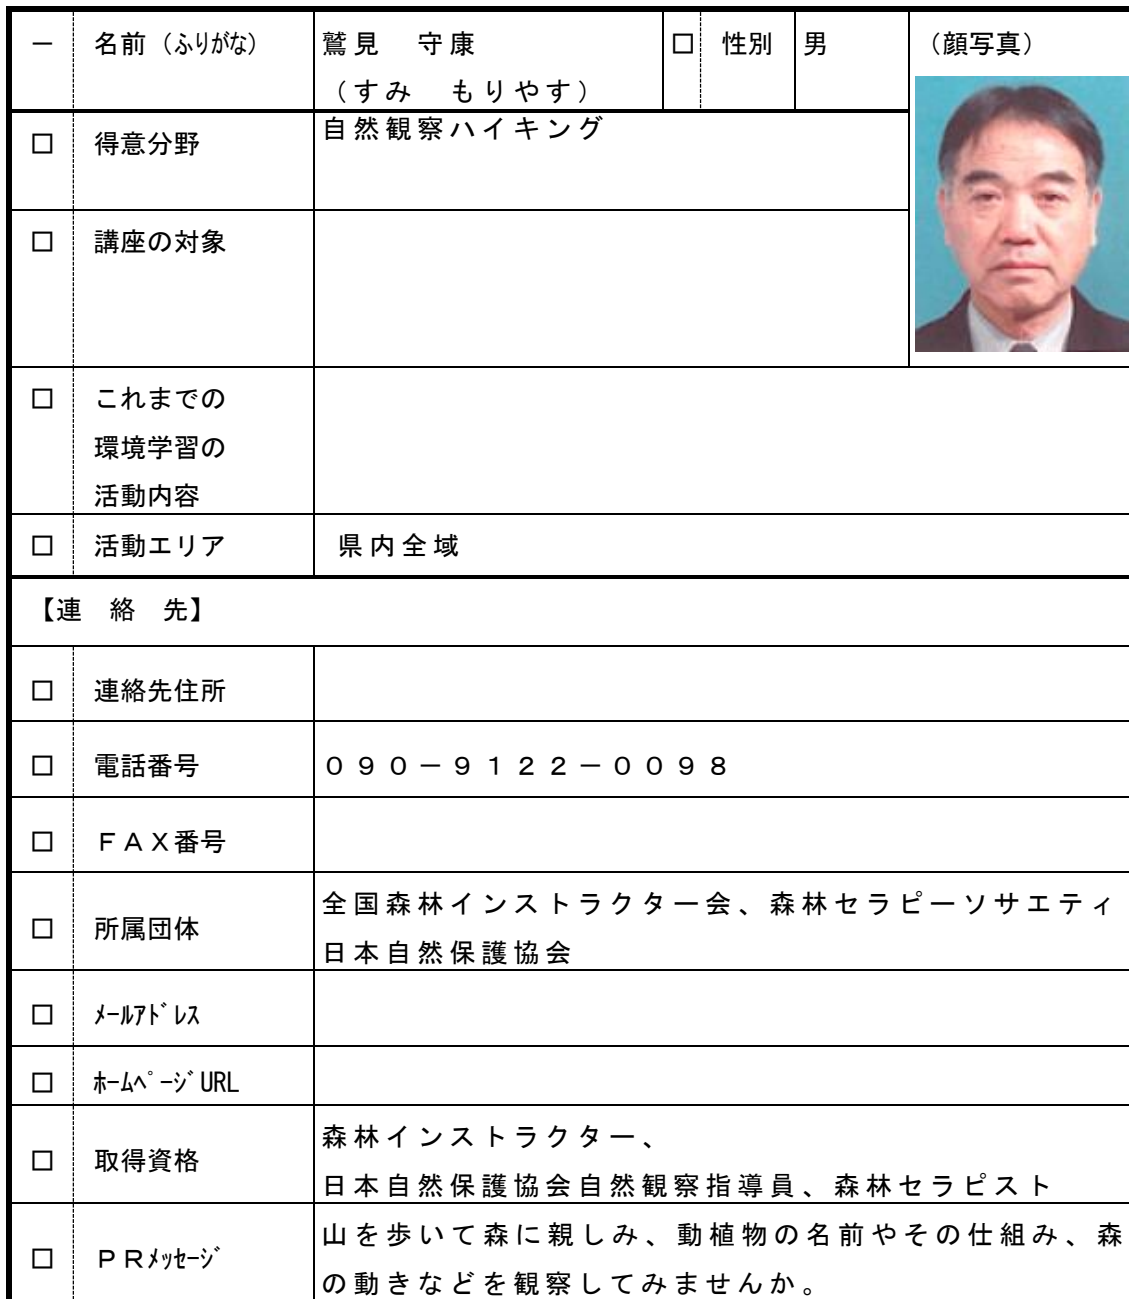 － 名前（ふりがな） 鷲見　守康 □ 性別 男 （顔写真）
（すみ　もりやす）
□ 得意分野 自然観察ハイキング
□ 講座の対象
□ これまでの
環境学習の
活動内容
□ 活動エリア 県内全域
【連　絡　先】
□ 連絡先住所
□ 電話番号 ０９０－９１２２－００９８
□ ＦＡＸ番号
□ 所属団体 全国森林インストラクター会、森林セラピーソサエティ
日本自然保護協会
□ ﾒｰﾙｱﾄﾞﾚｽ
□ ﾎｰﾑﾍﾟｰｼﾞURL
□ 取得資格 森林インストラクター、
日本自然保護協会自然観察指導員、森林セラピスト
□ ＰＲﾒｯｾｰｼﾞ 山を歩いて森に親しみ、動植物の名前やその仕組み、森
の動きなどを観察してみませんか。